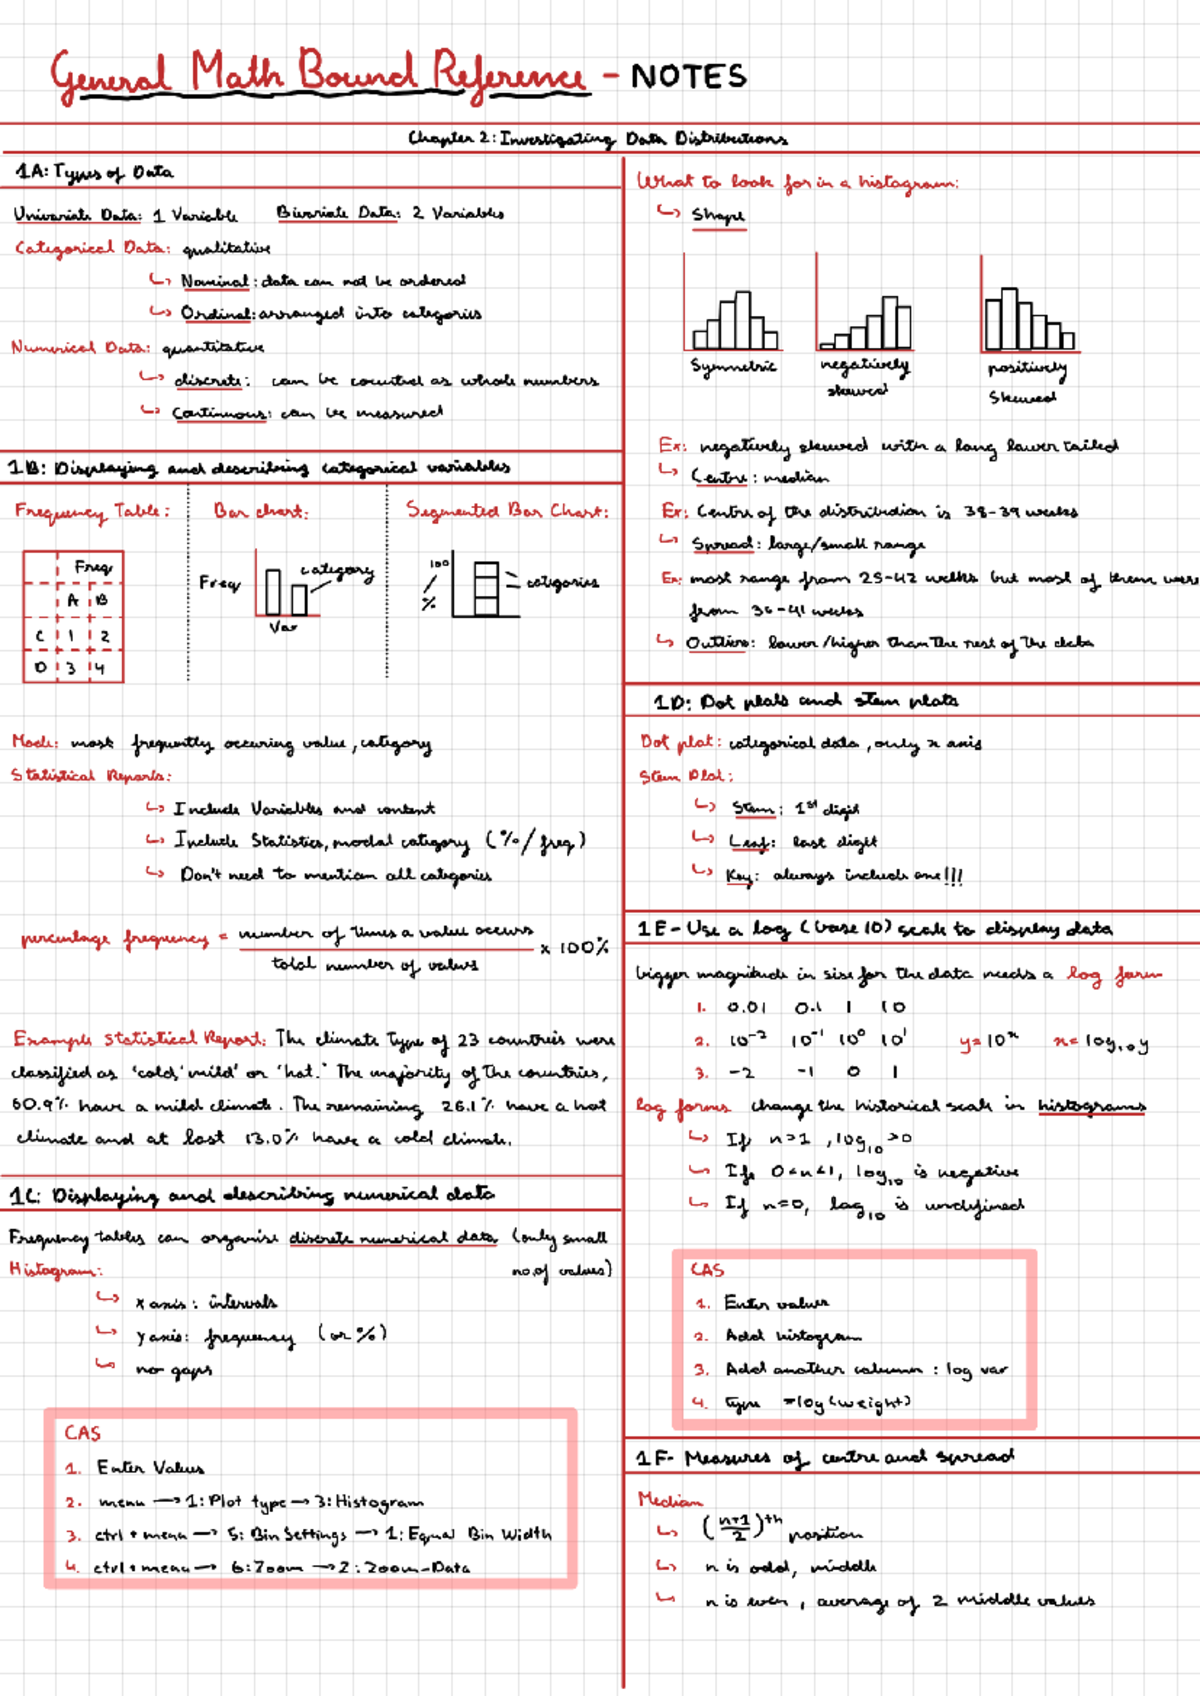 General Math Bound Reference - NOTES
Chapter 2: Investigating Data Distributions
1A: Types of Data
Univariate Data: 1 Variable Bivariate Data: 2 Variables
Categorical Data: qualitative
↳ Nominal: data can not be ordered
↳ Ordinal: arranged into categories
Numerical Data: quantitative
↳ discrete: can be counted as whole numbers
↳ Continuous: can be measured
1B: Displaying and describing categorical variables
Frequency Table: Bar chart: Segmented Bar Chart:
Freq
A B
C 1 2
D 3 4
Freq
category
Var
100
%
categories
Mode: most frequently occuring value, category
Statistical Reports:
↳ Include Variables and content
↳ Include Statistics, modal category (%/freq)
↳ Don't need to mention all categories
percentage frequency = number of times a value occurs / total number of values × 100%
Example Statistical Report: The climate type of 23 countries were
classified as 'cold,' mild' or 'hot.' The majority of the countries,
60.9% have a mild climate. The remaining 26.1% have a hot
climate and at last 13.0% have a cold climate.
1C: Displaying and describing numerical data
Frequency tables can organise discrete numerical data (only small
no. of values)
Histogram:
↳ x axis: intervals
↳ y axis: frequency (or %)
↳ no gaps
CAS
1. Enter Values
2. menu → 1: Plot type → 3: Histogram
3. ctrl + menu → 5: Bin Settings → 1: Equal Bin Width
4. ctrl + menu → 6: Zoom → 2: Zoom-Data
What to look for in a histogram:
↳ Shape
Symmetric
negatively
skewed
positively
Skewed
Ex: negatively skewed with a long lower tailed
↳ Centre: median
Ex: Centre of the distribution is 38-39 weeks
↳ Spread: large/small range
Ex: most range from 25-42 weeks but most of them were
from 36-41 weeks
↳ Outliers: lower/higher than the rest of the data
1D: Dot plots and stem plots
Dot plot: categorical data, only x axis
Stem Plot:
↳ Stem: 1st digit
↳ Leaf: last digit
↳ Key: always include one!!!
1E - Use a log (base 10) scale to display data
bigger magnitude in size for the data needs a log form
1. 0.01 0.1 1 10
2. 10⁻² 10⁻¹ 10⁰ 10¹ y=10ˣ x=log₁₀y
3. -2 -1 0 1
log forms change the historical scale in histograms
↳ If n>1, log₁₀>0
↳ If 0<n<1, log₁₀ is negative
↳ If n=0, log₁₀ is undefined
CAS
1. Enter values
2. Add histogram
3. Add another column: log var
4. type =log(weight)
1F- Measures of centre and spread
Median
↳ (n+1/2)th position
↳ n is odd, middle
↳ n is even, average of 2 middle values